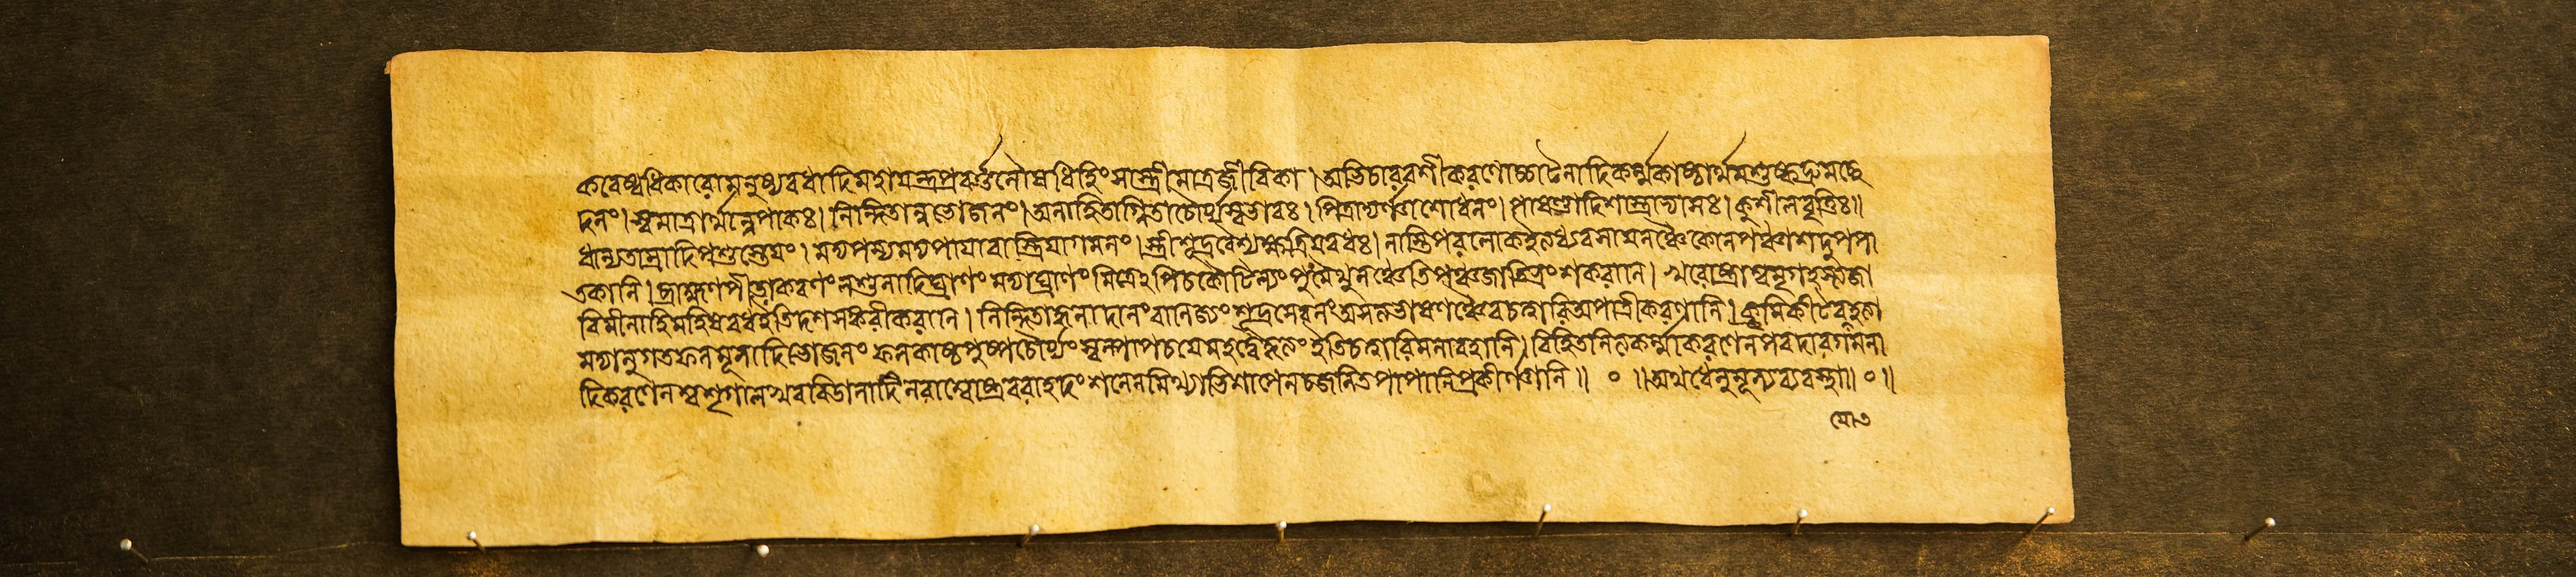 কবেষ্বধিকারোমনুষ্যবধাদিমহাযন্ত্রপ্রবর্ত্তনৌষধিহিংসাস্ত্রীমাত্রজীবিকা। অভিচারবশীকরণোচ্চাটনাদিকর্ম্মকাষ্ঠার্থমশুষ্কদ্রুমচ্ছে
দনং। স্বমাত্রার্থান্নপাকঃ। নিন্দিতান্নভোজনং। অনাহিতাগ্নিতাচৌর্য্যস্বভাবঃ। পিত্রাদ্যর্ণাশোধনং। পাষণ্ডাদিশাস্ত্রাভ্যাসঃ। কুশীলবৃত্তিঃ॥
ধান্যতাম্রাদিপশুস্তেয়ং। মদ্যপস্যমদ্যপাযাবাস্ত্রিয়াগমনং। স্ত্রীশূদ্রবৈশ্যক্ষত্রিয়বধঃ। নাস্তিপরলোকইত্যধ্যবসায়নঞ্চৈকোনপঞ্চাশদুপপা
তকানি। ব্রাহ্মণপীড়াকরণং লশুনাদিঘ্রাণং মদ্যাঘ্রাণং মিত্রেঽপিচকৌটিল্যং পুংমৈথুনঞ্চেতিপঞ্চজাতিভ্রংশকরাণি। খরোষ্ট্রাশ্বমৃগহস্ত্যজা
বিমীনাহিমহিষবধইতিদশসঙ্করীকরাণি। নিন্দিতাদ্ধনাদানং বানিজ্যং শূদ্রসেবনং অসত্যভাষণঞ্চৈবচত্বারিঅপাত্রীকরণানি। কৃমিকীটবধ্রহত্যা
মদ্যানুগতফলমূলাদিভোজনং ফলকাষ্ঠপুষ্পচৌর্য্যং স্বল্পাপচয়েমহদ্বৈক্লব্যং ইতিচত্বারিমলাবহানি। বিহিতনিত্যকর্ম্মাকরণেনপরদারগমনা
দিকরণেনশ্বশৃগালখরবিড়ালাদিনরাশ্বোষ্ট্রবরাহদংশনেনমিথ্যাভিশাপেনচজনিতপাপানিপ্রকীর্ণানি॥ ০ ॥ অথধেনুমূল্যব্যবস্থা॥ ০ ॥